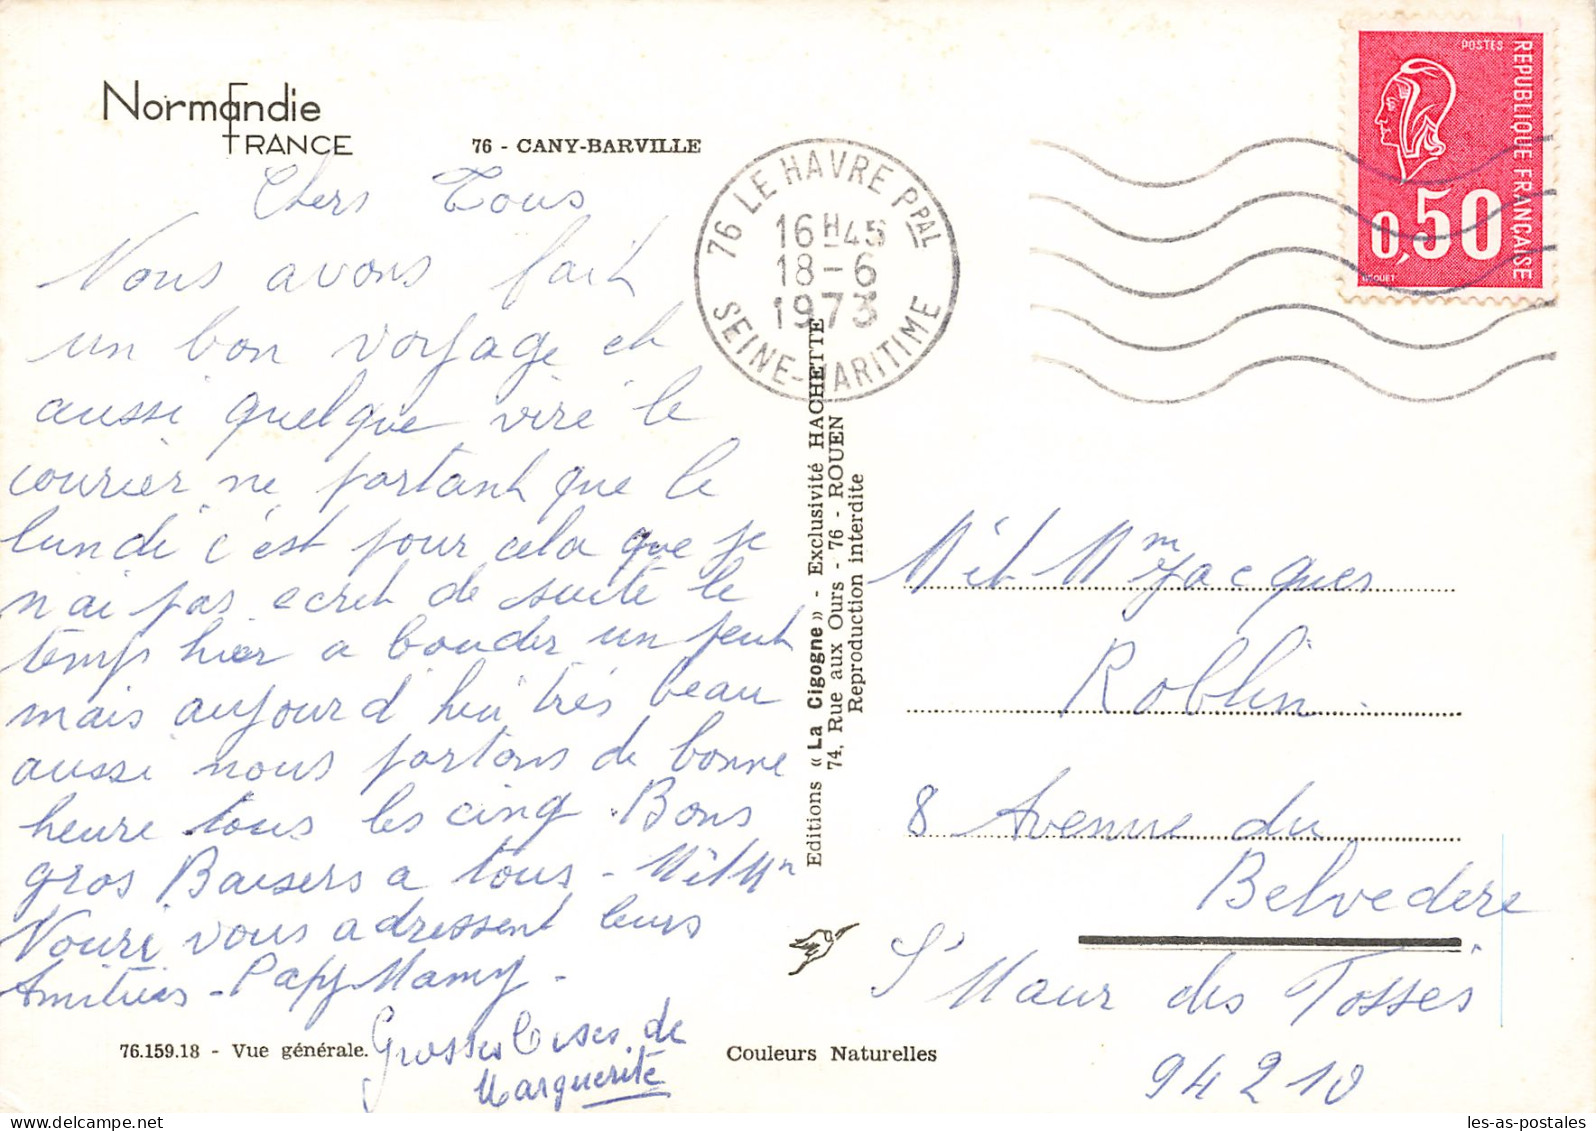 Normandie
FRANCE
76 - CANY-BARVILLE
Chers Tous
Nous avons fait
un bon voyage et
aussi quelque viré le
courrier ne partant que le
lundi c'est pour cela que je
n'ai pas ecrit de suite le
temps hier a bouder un peut
mais aujourd'hui très beau
aussi nous partons de bonne
heure tous les cinq. Bons
gros Baisers a tous - M et Mm
Nouri vous adressent leurs
Amitiés - Papy Mamy -
Grosses bises de
Marguerite
76.159.18 - Vue générale.
Couleurs Naturelles
76 LE HAVRE PPAL
16H45
18-6
1973
SEINE-MARITIME
Editions « La Cigogne » - Exclusivité HACHETTE
74, Rue aux Ours - 76 - ROUEN
Reproduction interdite
POSTES
REPUBLIQUE FRANÇAISE
0,50
BEQUET
M et Mme Jacques
Roblin.
8 Avenue du
Belvedere
St Maur des Fossés
94210
les-as-postales